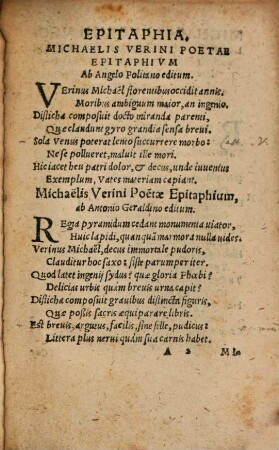 EPITAPHIA.
MICHAELIS VERINI POETAE
EPITAPHIVM
Ab Angelo Politiano editum.
Verinus Michaël florentibus occidit annis.
Moribus ambiguum maior, an ingenio.
Disticha composuit docto miranda parenti,
Quæ claudunt gyro grandia sensa brevi.
Sola Venus poterat lento succurrere morbo:
Ne se pollueret, maluit ille mori.
Hic iacet heu patri dolor, & decus, unde iuventus
Exemplum, Vates materiam capiant.
Michaëlis Verini Poëtæ Epitaphium,
ab Antonio Geraldino editum.
Regia pyramidum cedant monumenta viator,
Huic lapidi, quanquā marmora nulla vides.
Verinus Michaël, decus immortale pudoris,
Clauditur hoc saxo: siste parumper iter.
Quod latet ingenij sydus? quæ gloria Phœbi?
Delicias urbis quàm brevis urna capit?
Disticha composuit gravibus distincta figuris,
Quæ possis sacris æquiparare libris.
Est brevis, argutus, facilis, sine felle, pudicus:
Littera plus nervi quàm sua carnis habet.
A 2 Mi